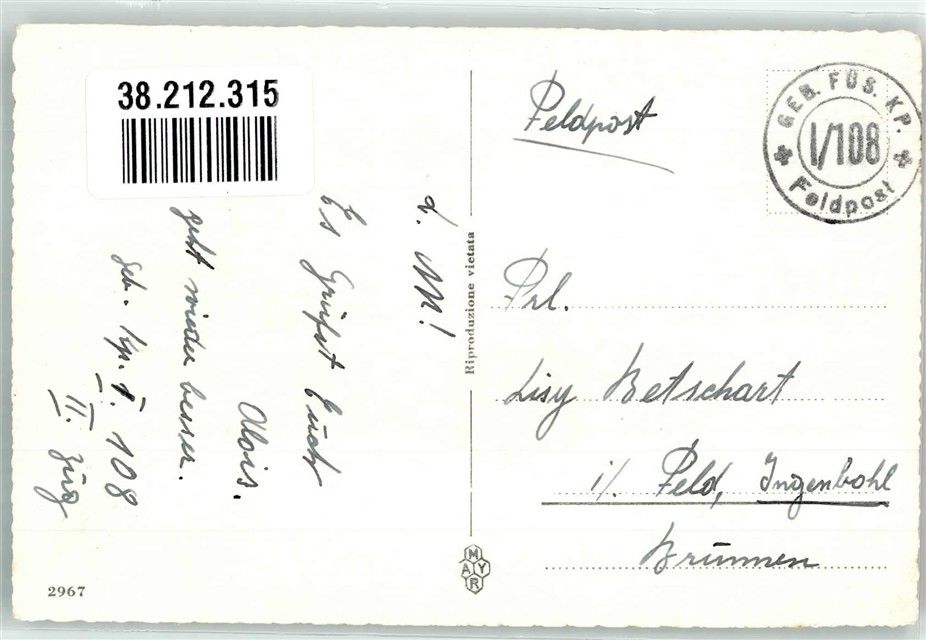 38.212.315
d. M!
Es Grüsst Euch
Alois.
geht wieder besser.
Geb. Kp. I. 108
II. Zug
2967
Riproduzione vietata
MAYR
Feldpost
GEB. FÜS. KP.
I/108
Feldpost
Frl.
Lisy Betschart
i/. Feld, Ingenbohl
Brunnen